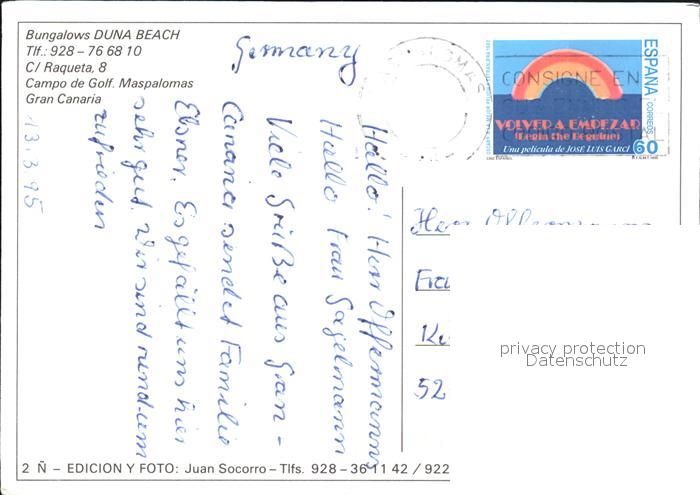 Bungalows DUNA BEACH
Tlf.: 928 - 76 68 10
C/ Raqueta, 8
Campo de Golf. Maspalomas
Gran Canaria
Germany
CONSIGNE EN
ESPAÑA
CORREOS
VOLVER A EMPEZAR
(Begin the Beguine)
Una película de JOSE LUIS GARCI
60
Hallo! Herr Offermanns
Hallo Frau Sagelmann
Viele Grüße aus Gran -
Canaria sendet Familie
Elsner. Es gefällt uns hier
sehr gut. Wir sind rund-um
zufrieden
13.3.95
Herr Offermanns
Fra
52
privacy protection
Datenschutz
2 Ñ – EDICION Y FOTO: Juan Socorro – Tlfs. 928 - 36 11 42 / 922